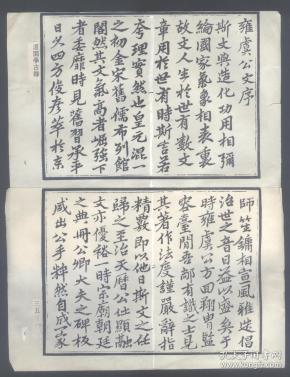 雍虞公文序
斯文與造化功用相彌
綸國家氣象相表裏
故文人生於世有數文
章用於世有時斯言若
夸理實然也皇元混一
之初金宋舊儒布列館
閣然其文氣高者崛強下
者委靡時見舊習承平
日久四方俊彥萃於京
師笙鏞相宣風雅迭倡
治世之音日益以盛矣于
時雍虞公方回翔胄監
容臺間吾鄉有識之士見
其著作法度謹嚴辭指
精覈即以他日斯文之任
歸之至治天曆公仕顯融
文亦優裕一時宗廟朝廷
之典冊公卿大夫之碑板
咸出公手粹然自成一家
道園學古錄
三五